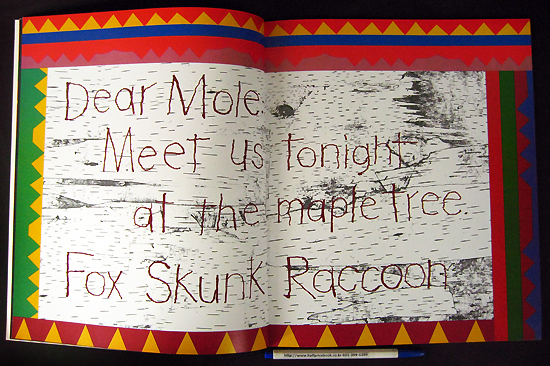 Dear Mole,
Meet us tonight
at the maple tree.
Fox Skunk Raccoon